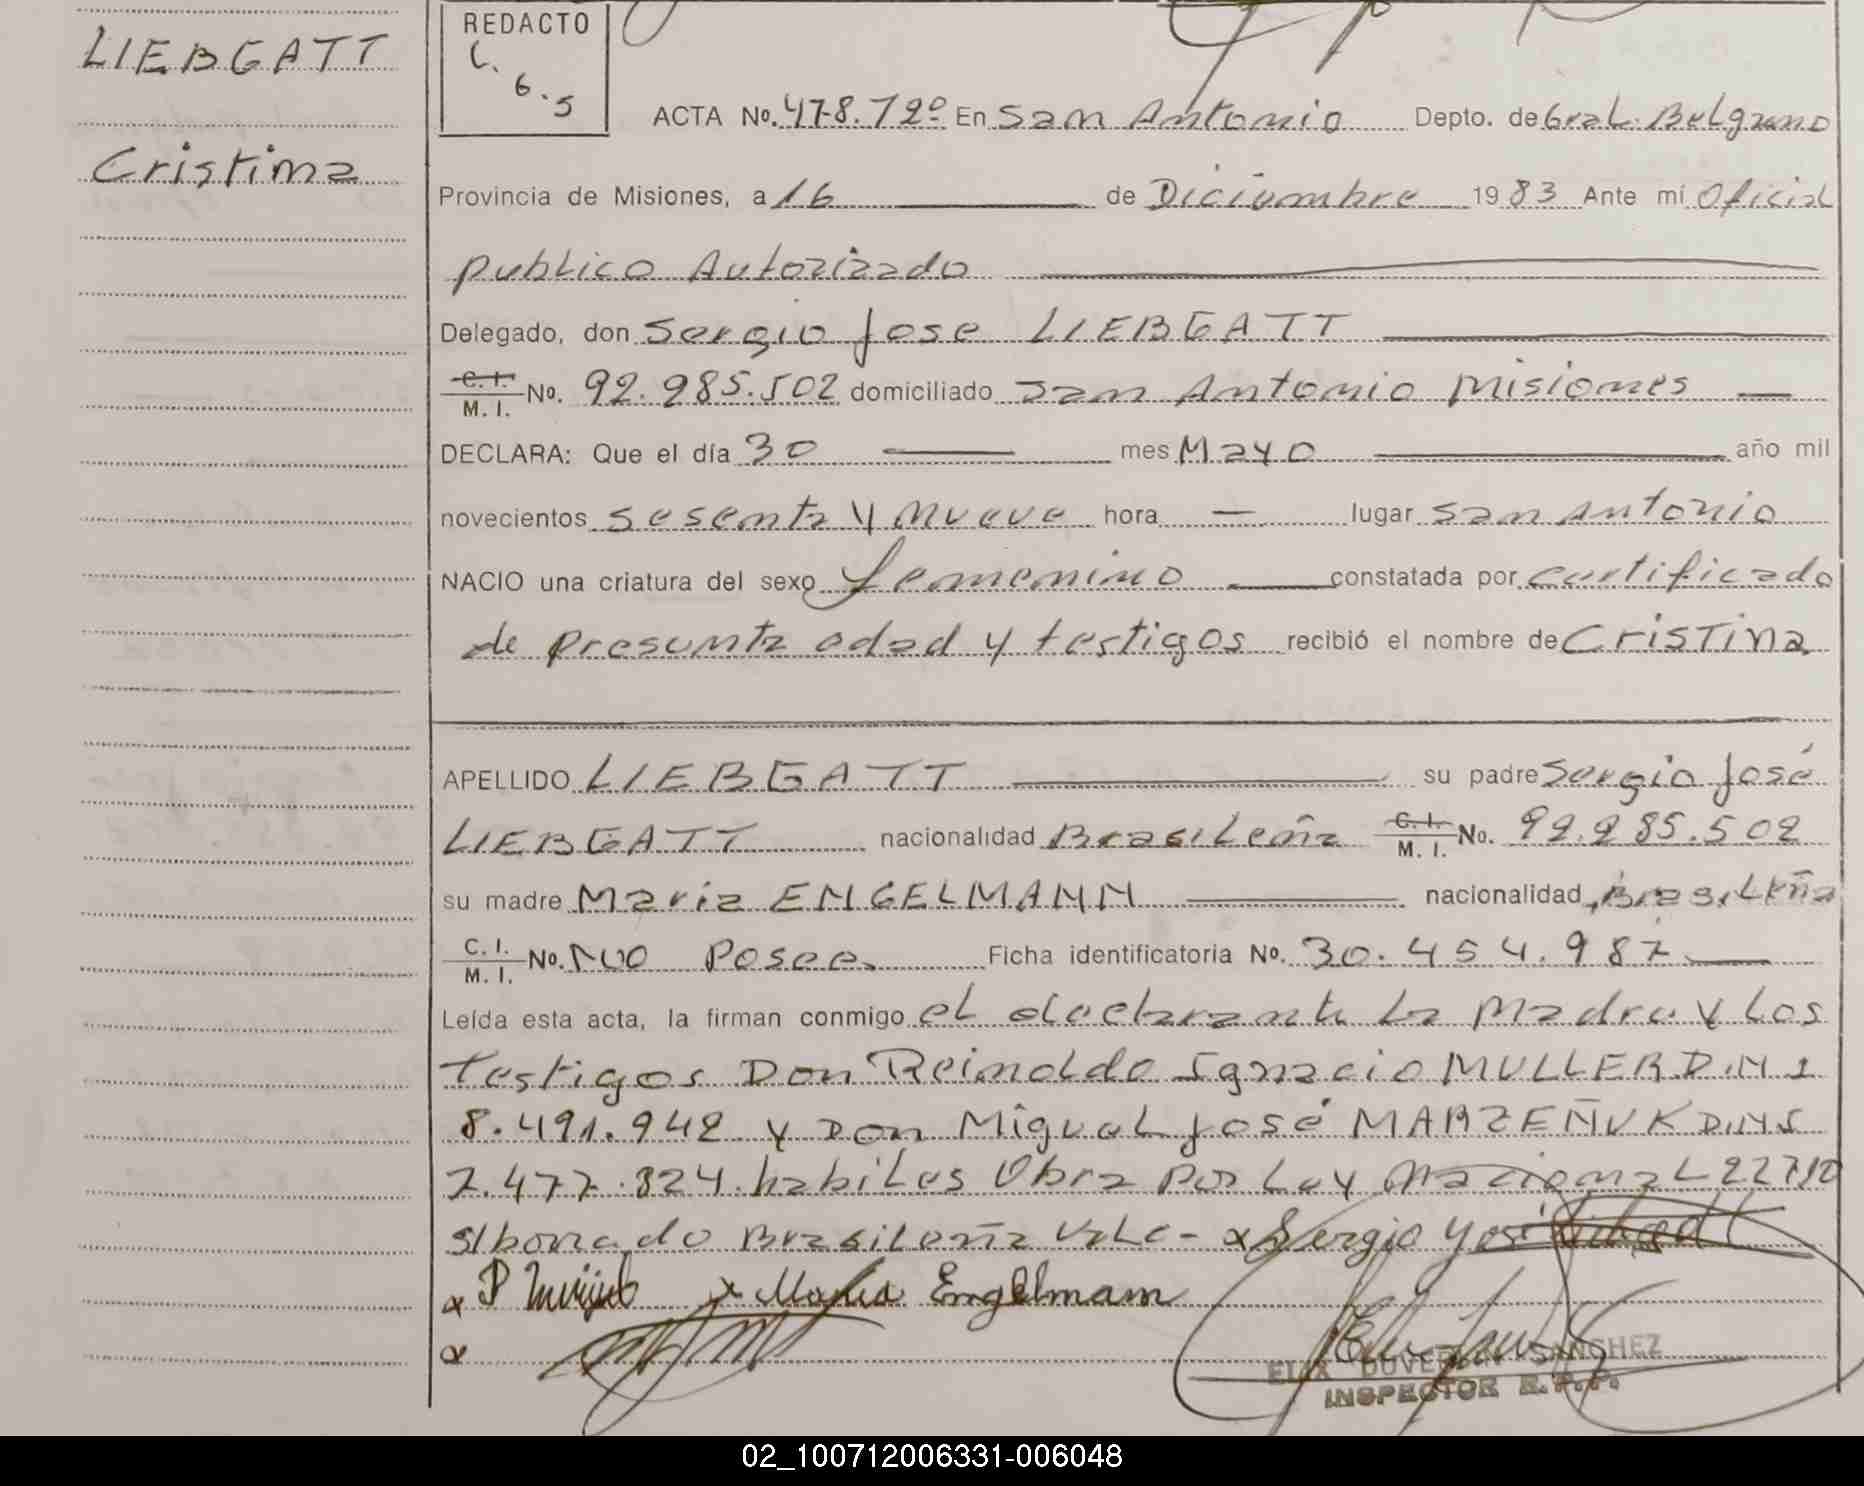 LIEBGATT
Cristina
REDACTO
C.
6.5
ACTA No. 478.72º En San Antonio Depto. de Gral. Belgrano
Provincia de Misiones, a 16 de Diciembre 1983 Ante mí Oficial
publico Autorizado
Delegado, don Sergio Jose LIEBGATT
C. I. M. I. No. 92.985.502 domiciliado San Antonio Misiones
DECLARA: Que el día 30 mes Mayo año mil
novecientos sesenta y nueve hora — lugar San Antonio
NACIO una criatura del sexo femenino constatada por certificado
de presunta edad y testigos recibió el nombre de CRISTINA
APELLIDO LIEBGATT su padre Sergio José
LIEBGATT nacionalidad Brasileña C. I. M. I. No. 92.985.502
su madre Maria ENGELMANN nacionalidad Brasileña
C. I. M. I. No. No Posee Ficha identificatoria No. 30.454.987
Leída esta acta, la firman conmigo el declarante la Madre y Los
Testigos Don Reinoldo Ignacio MULLER D.N I
8.491.942 y Don Miguel José MARZEÑUK D.N.I
7.477.824 habiles Obra por Ley Nacional 22710
S/borrado Brasileña Vale - x Sergio Yosé
x P x Maria Engelmam
x
ELIX DUVER SANCHEZ
INSPECTOR R.P.P.
02_100712006331-006048